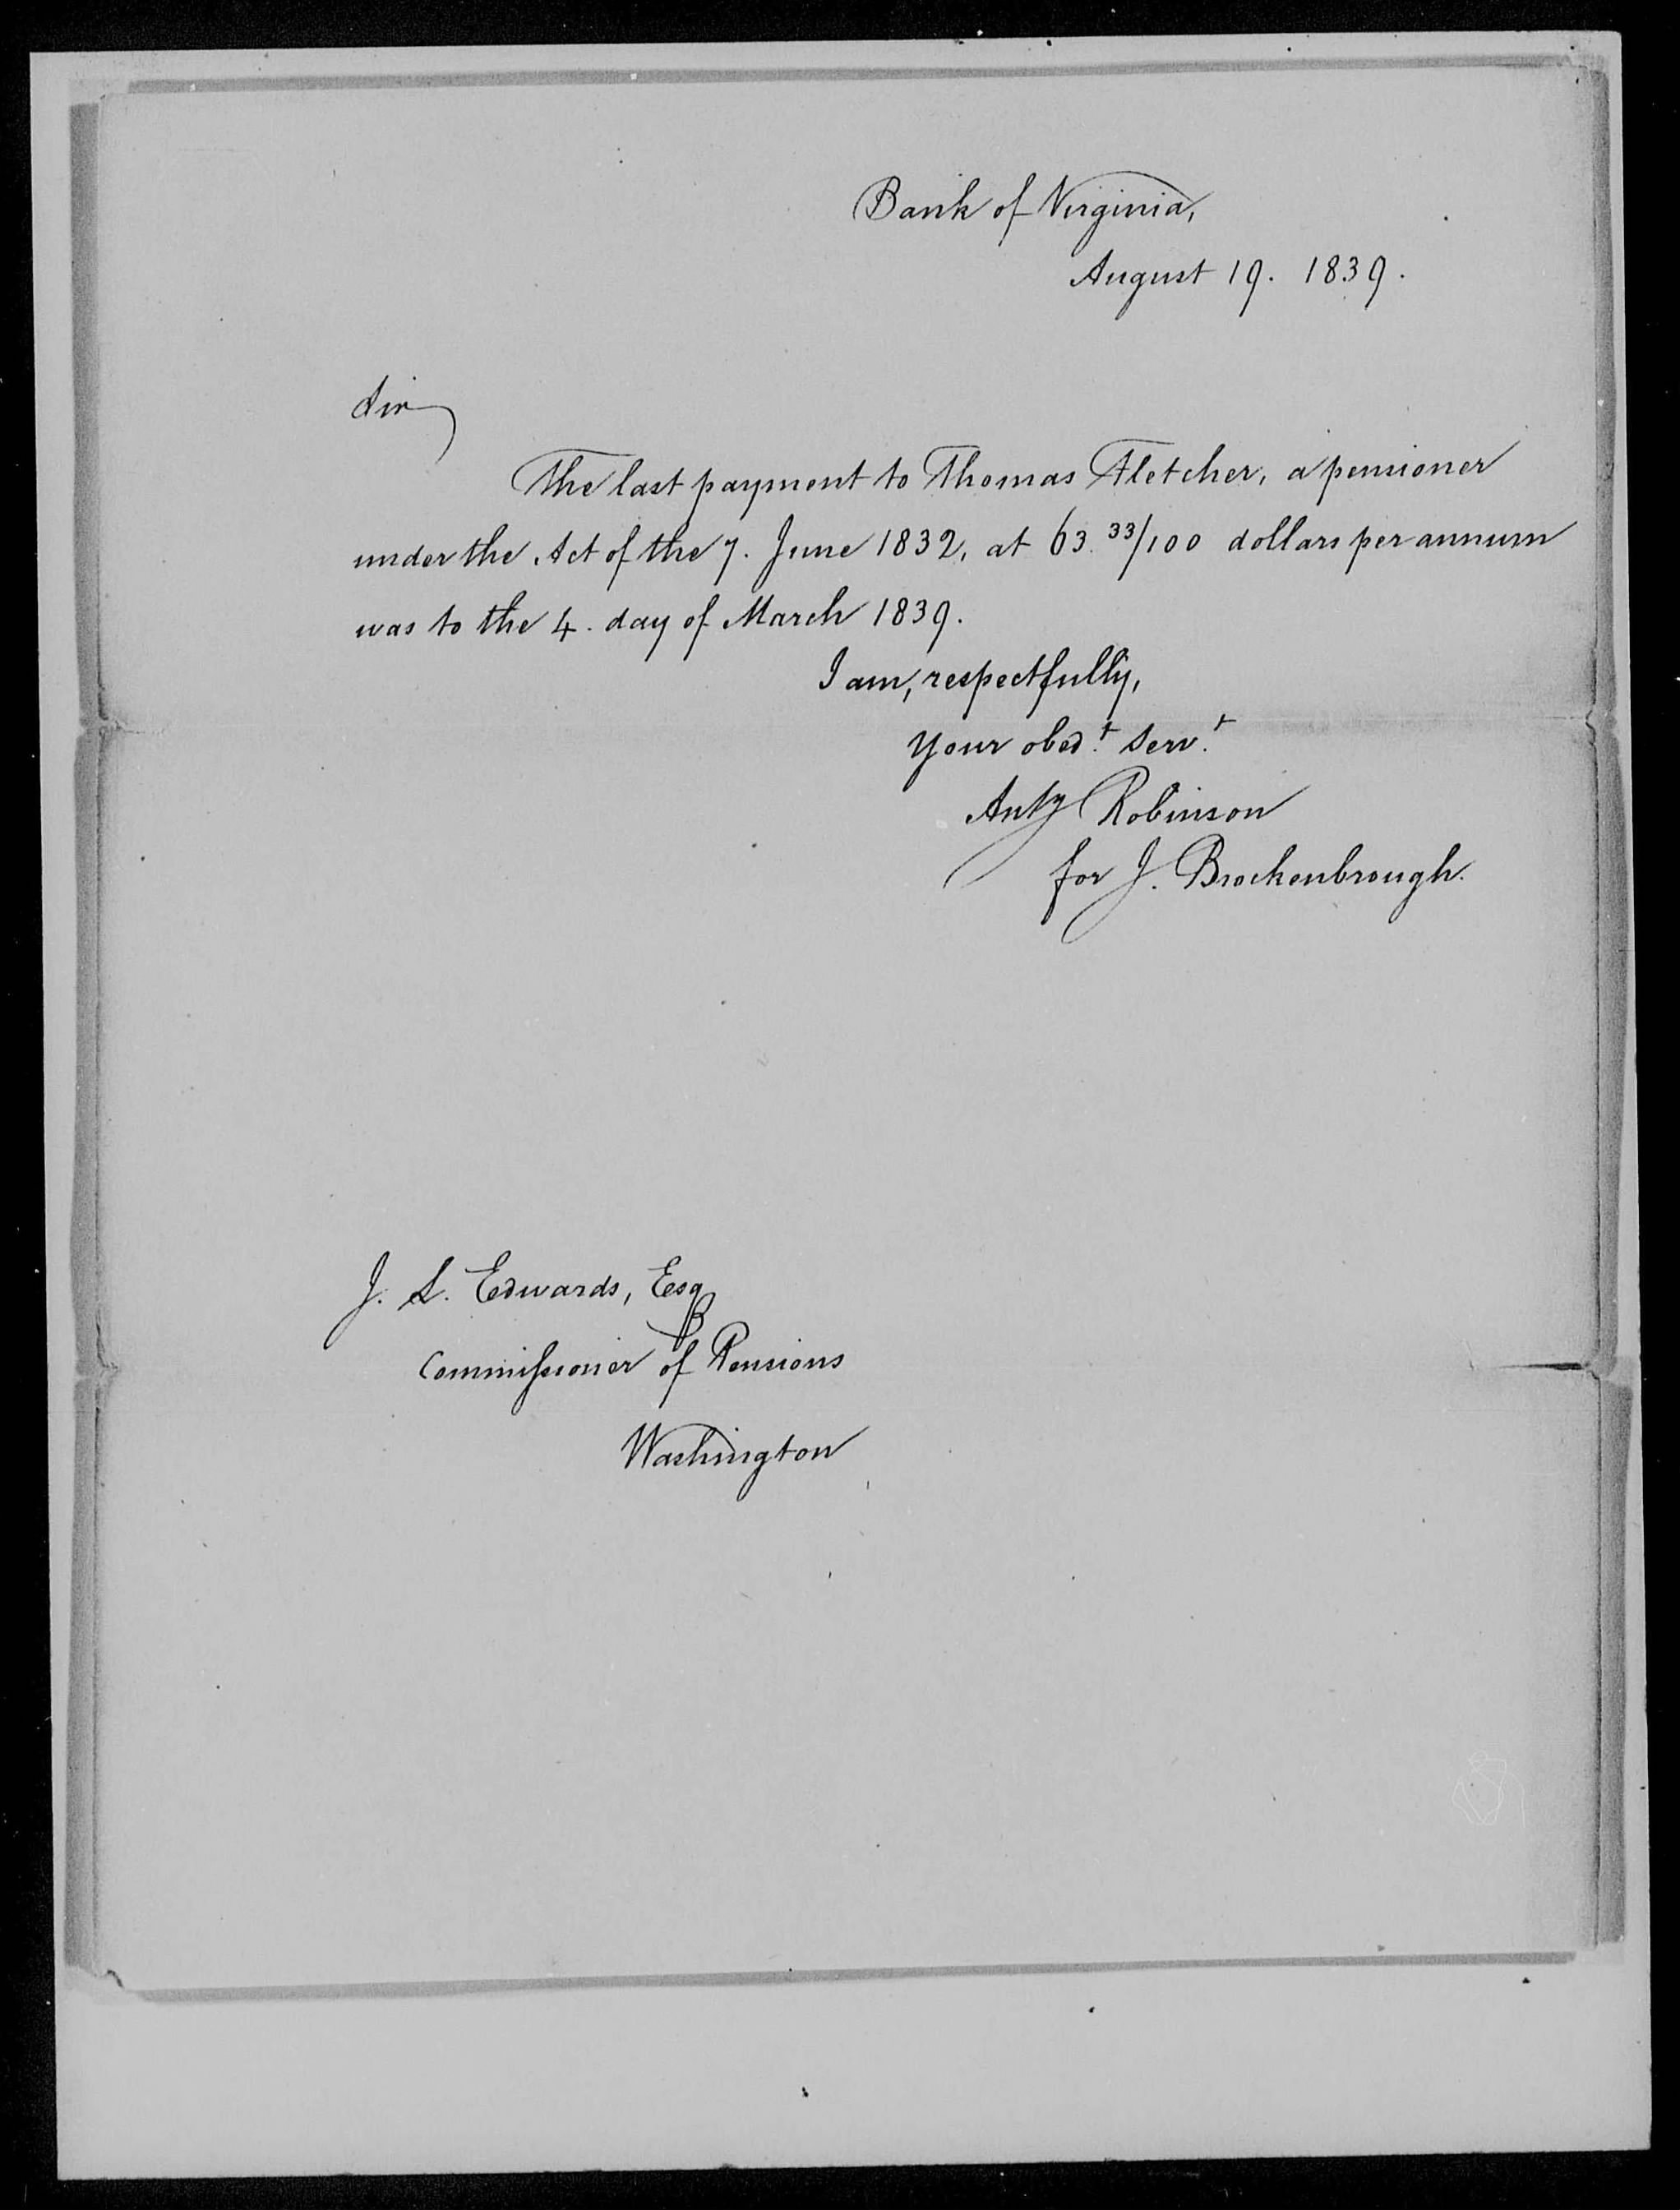 Bank of Virginia,
August 19. 1839.
Sir
The last payment to Thomas Fletcher, a pensioner
under the Act of the 7. June 1832, at 63. 33/100 dollars per annum
was to the 4. day of March 1839.
I am, respectfully,
Your obedt. servt.
Anty Robinson
for J. Brockenbrough.
J. L. Edwards, Esq
Commissioner of Pensions
Washington